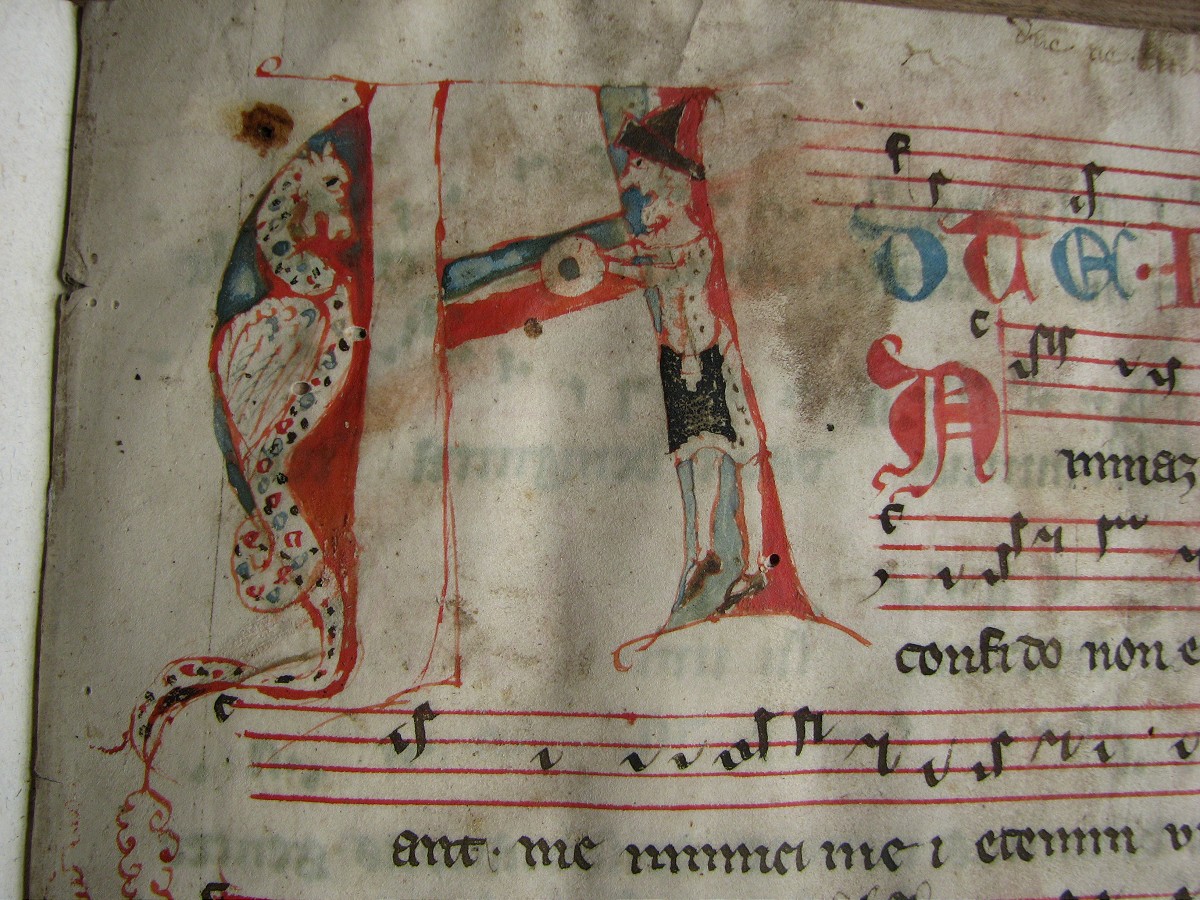 AD TE · L
Animaz
confido non e
ant · me inimici me i etenim v